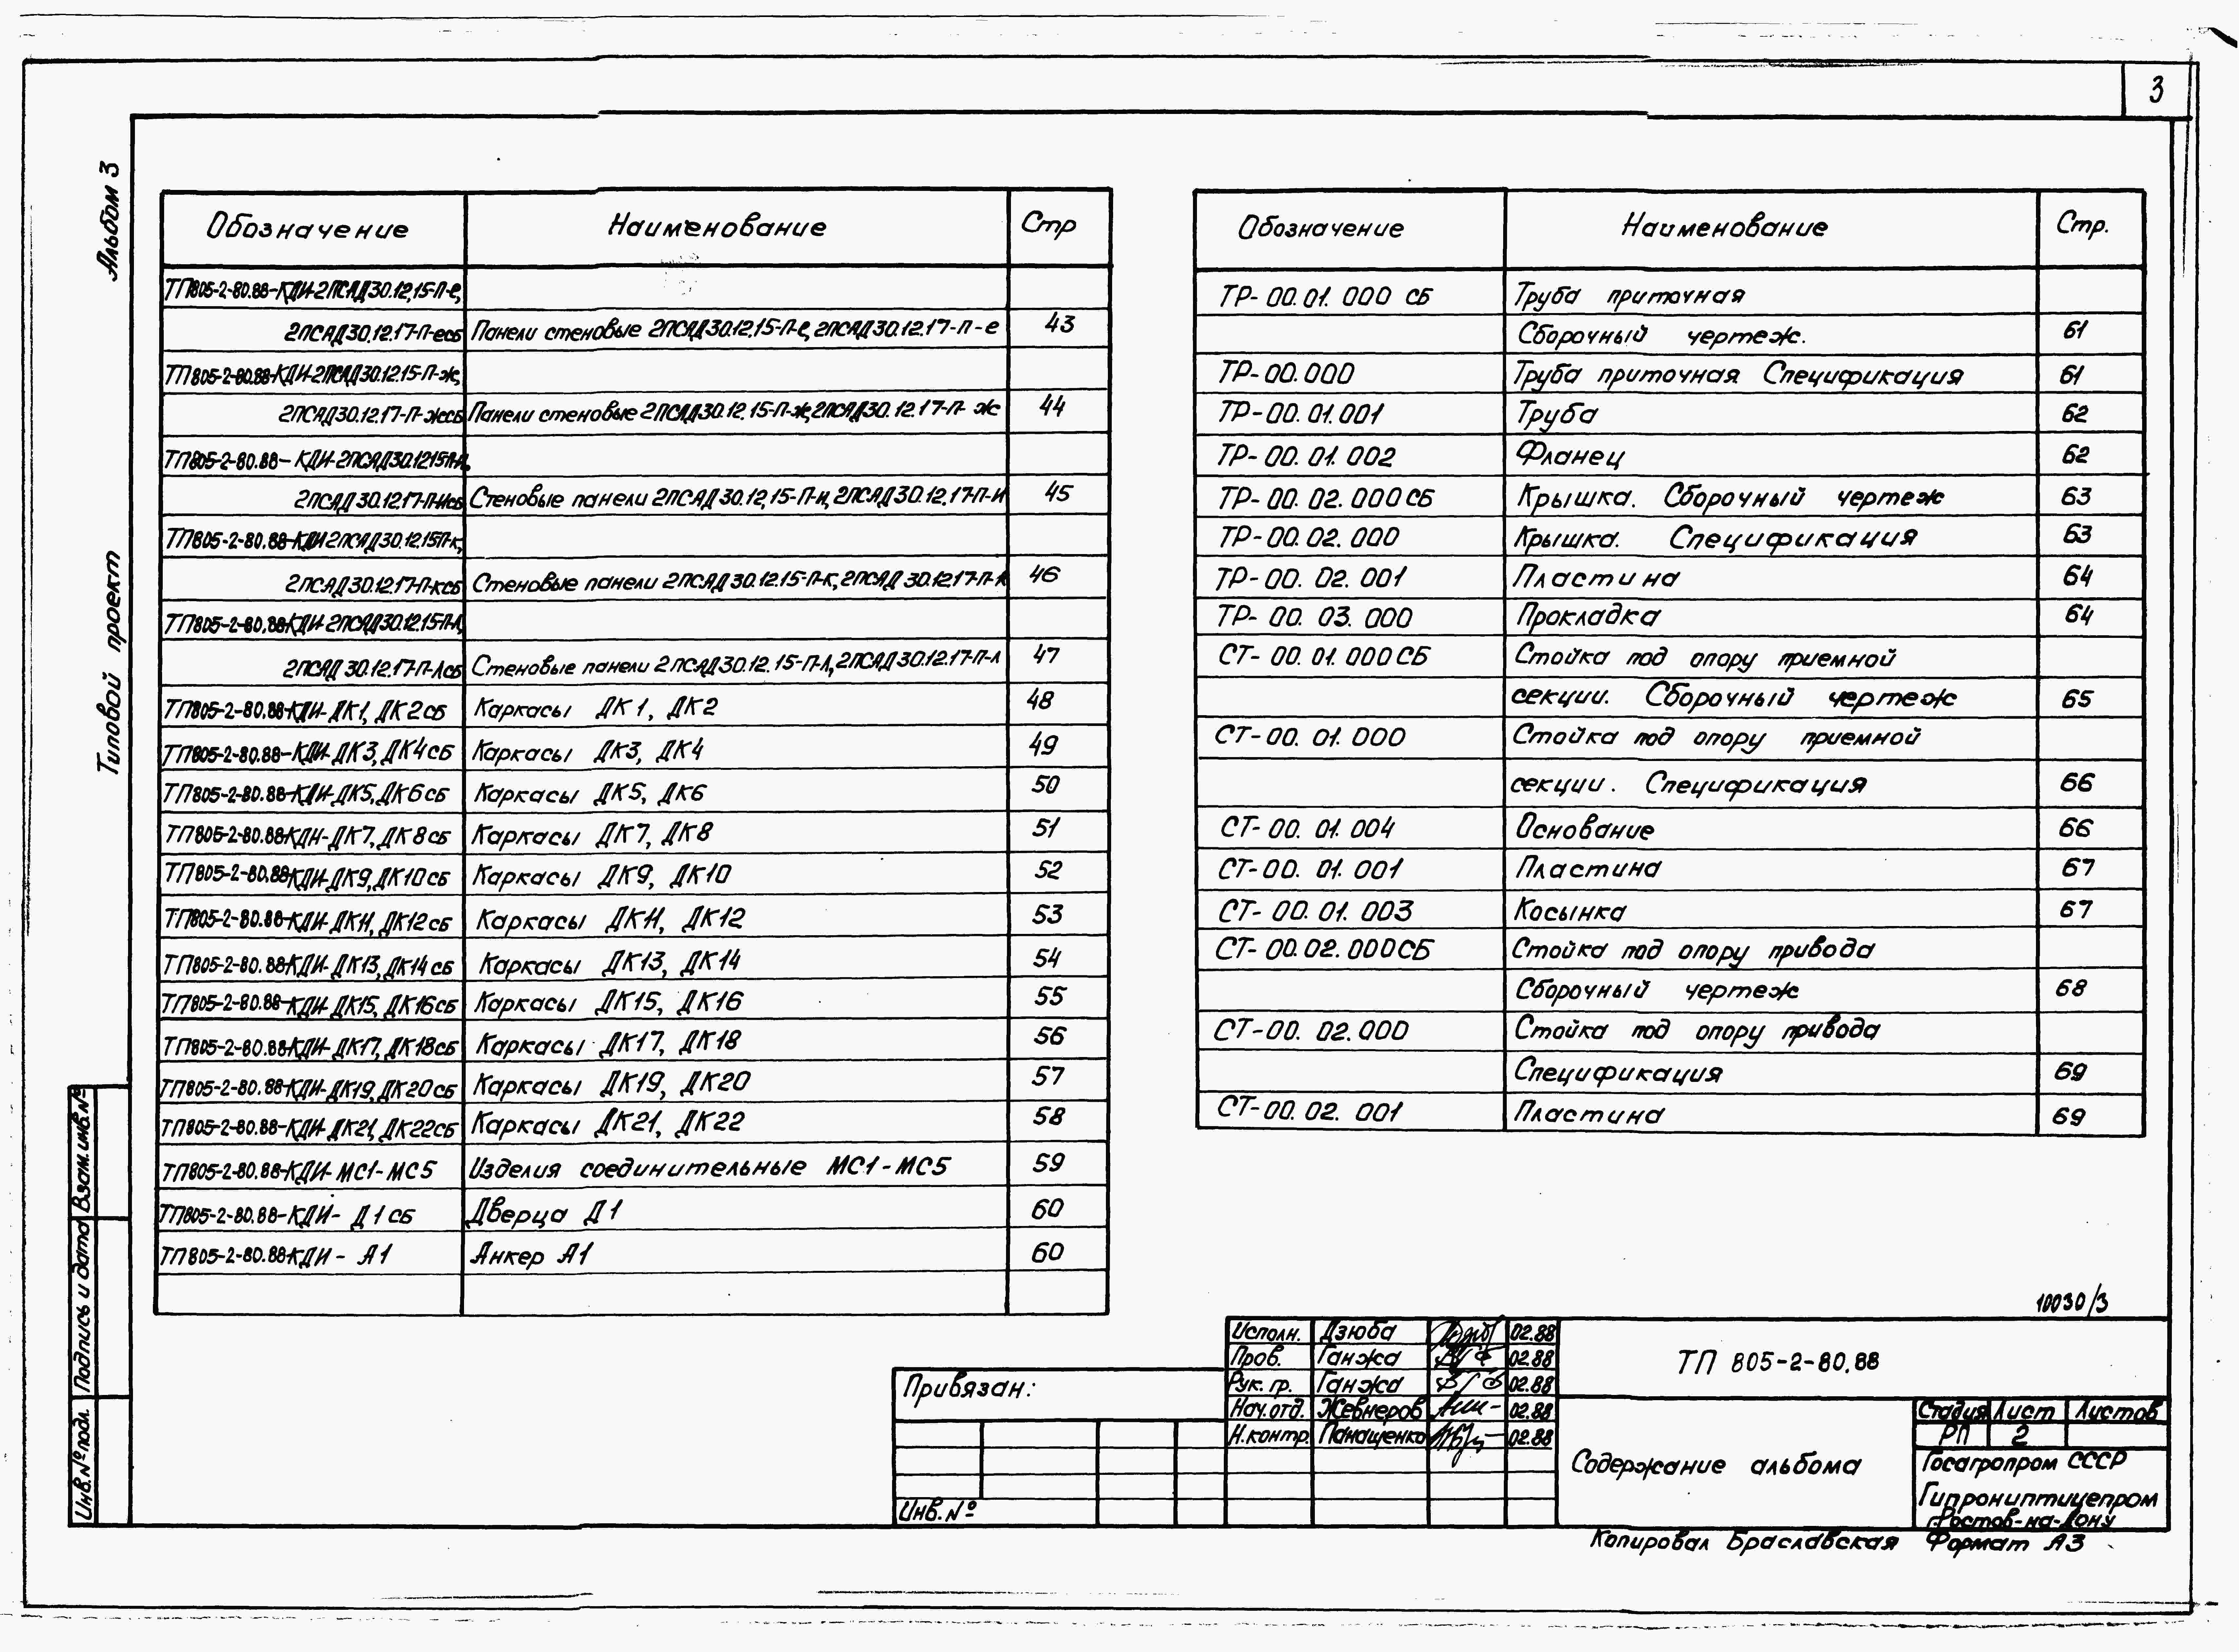 3
Альбом 3
Типовой проект
Обозначение Наименование Стр
ТП805-2-80.88-КДИ-2ПСАД30.12.15-П-е,
2ПСАД30.12.17-П-есб Панели стеновые 2ПСАД30.12.15-П-е, 2ПСАД30.12.17-П-е 43
ТП805-2-80.88-КДИ-2ПСАД30.12.15-П-ж,
2ПСАД30.12.17-П-жсб Панели стеновые 2ПСАД30.12.15-П-ж, 2ПСАД30.12.17-П-ж 44
ТП805-2-80.88-КДИ-2ПСАД30.12.15П-и,
2ПСАД30.12.17-П-исб Стеновые панели 2ПСАД30.12.15-П-и, 2ПСАД30.12.17-П-и 45
ТП805-2-80.88-КДИ 2ПСАД30.12.15П-к,
2ПСАД30.12.17-П-ксб Стеновые панели 2ПСАД30.12.15-П-к, 2ПСАД30.12.17-П-к 46
ТП805-2-80.88-КДИ-2ПСАД30.12.15-П-л,
2ПСАД30.12.17-П-лсб Стеновые панели 2ПСАД30.12.15-П-л, 2ПСАД30.12.17-П-л 47
ТП805-2-80.88-КДИ-ДК1, ДК2сб Каркасы ДК1, ДК2 48
ТП805-2-80.88-КДИ-ДК3, ДК4сб Каркасы ДК3, ДК4 49
ТП805-2-80.88-КДИ-ДК5, ДК6сб Каркасы ДК5, ДК6 50
ТП805-2-80.88-КДИ-ДК7, ДК8сб Каркасы ДК7, ДК8 51
ТП805-2-80.88-КДИ-ДК9, ДК10сб Каркасы ДК9, ДК10 52
ТП805-2-80.88-КДИ-ДК11, ДК12сб Каркасы ДК11, ДК12 53
ТП805-2-80.88-КДИ-ДК13, ДК14сб Каркасы ДК13, ДК14 54
ТП805-2-80.88-КДИ-ДК15, ДК16сб Каркасы ДК15, ДК16 55
ТП805-2-80.88-КДИ-ДК17, ДК18сб Каркасы ДК17, ДК18 56
ТП805-2-80.88-КДИ-ДК19, ДК20сб Каркасы ДК19, ДК20 57
ТП805-2-80.88-КДИ-ДК21, ДК22сб Каркасы ДК21, ДК22 58
ТП805-2-80.88-КДИ-МС1-МС5 Изделия соединительные МС1-МС5 59
ТП805-2-80.88-КДИ-Д1сб Дверца Д1 60
ТП805-2-80.88-КДИ-А1 Анкер А1 60
Обозначение Наименование Стр.
ТР-00.01.000 СБ Труба приточная
Сборочный чертеж. 61
ТР-00.000 Труба приточная Спецификация 61
ТР-00.01.001 Труба 62
ТР-00.01.002 Фланец 62
ТР-00.02.000СБ Крышка. Сборочный чертеж 63
ТР-00.02.000 Крышка. Спецификация 63
ТР-00.02.001 Пластина 64
ТР-00.03.000 Прокладка 64
СТ-00.01.000СБ Стойка под опору приемной
секции. Сборочный чертеж 65
СТ-00.01.000 Стойка под опору приемной
секции. Спецификация 66
СТ-00.01.004 Основание 66
СТ-00.01.001 Пластина 67
СТ-00.01.003 Косынка 67
СТ-00.02.000СБ Стойка под опору привода
Сборочный чертеж 68
СТ-00.02.000 Стойка под опору привода
Спецификация 69
СТ-00.02.001 Пластина 69
Взам.инв.№
Подпись и дата
Инв.№подл.
10030/3
Привязан:
Инв.№
Исполн. Дзюба 02.88
Пров. Ганжа 02.88
Рук.гр. Ганжа 02.88
Нач.отд. Жевнеров 02.88
Н.контр. Панащенко 02.88
ТП 805-2-80.88
Содержание альбома
Стадия Лист Листов
РП 2
Госагропром СССР
Гипрониптицепром
г.Ростов-на-Дону
Копировал Браславская Формат А3